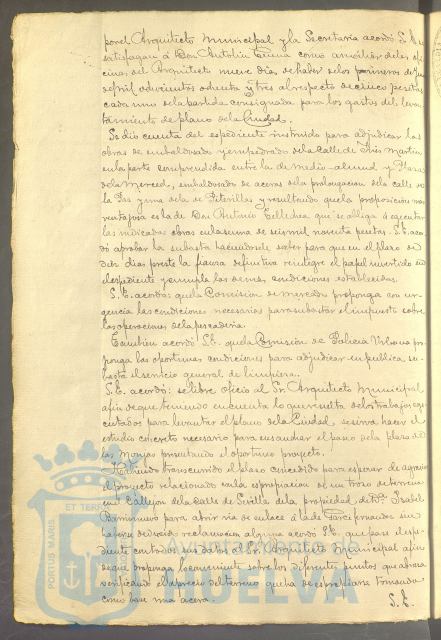 por el Arquitecto Municipal y la Secretaria acordó S. E. se
satisfagan á Don Antolin como auxiliar de las ofi
cinas del Arquitecto nueve dias de haber de los primeros de
de mil ochocientos ochenta y tres al respecto de cinco pesetas
cada uno de la partida consignada para los gastos del levan
tamiento de plano de la Ciudad.
Se dió cuenta del espediente instruido para adjudicar las
obras de embaldosado y empedrado de la Calle de Tres
en la parte comprendida entre la de medio-almud y Plaza
de la Merced, embaldosado de aceras de la prolongacion de la calle de
la Paz y una de la de y resultando que la proposicion mas
ventajosa es la de Don Antonio que se obliga á ejecutar
las indicadas obras en la suma de seis mil noventa pesetas. S. E. acor
dó aprobar la subasta haciendosele saber para que en el plazo de
diez dias preste la fianza definitiva reintegre el papel invertido en
el espediente y cumpla las demas condiciones establecidas.
S. E. acordó: que la Comision de Mercado proponga con ur
gencia las condiciones necesarias para subastar el impuesto sobre
las operaciones de la pescaderia.
Tambien acordó S. E. que la Comision de Policia Urbana pro
ponga las oportunas condiciones para adjudicar en publica su-
basta el servicio general de limpieza.
S. E. acordó: se libre oficio al Sr. Arquitecto Municipal
afin de que teniendo en cuenta lo que resulta de los trabajos eje
cutados para levantar el plano de la Ciudad se sirva hacer el
estudio concreto necesario para ensanchar el paseo de la plaza de
las Monjas presentando el oportuno proyecto.
Habiendo transcurrido el plazo concedido para esperar de agravios
el proyecto relacionado con la espropiacion de un trozo de terreno
en Callejon de la Calle de Sevilla de la propiedad de Dª Isabel
para abrir via de enlace á la de Garcifernandez sin
haberse deducido reclamacion alguna acordó S. E. que pase el espe-
diente con todos sus datos al Sr. Arquitecto Municipal afin
de que proponga lo conveniente sobre los diferentes puntos que abraza
verificando el aprecio del terreno que ha de espropiarse tomando
como base una acera.
S. E.
PORTUS MARIS
ET TERRÆ
Ayuntamiento de
HUELVA